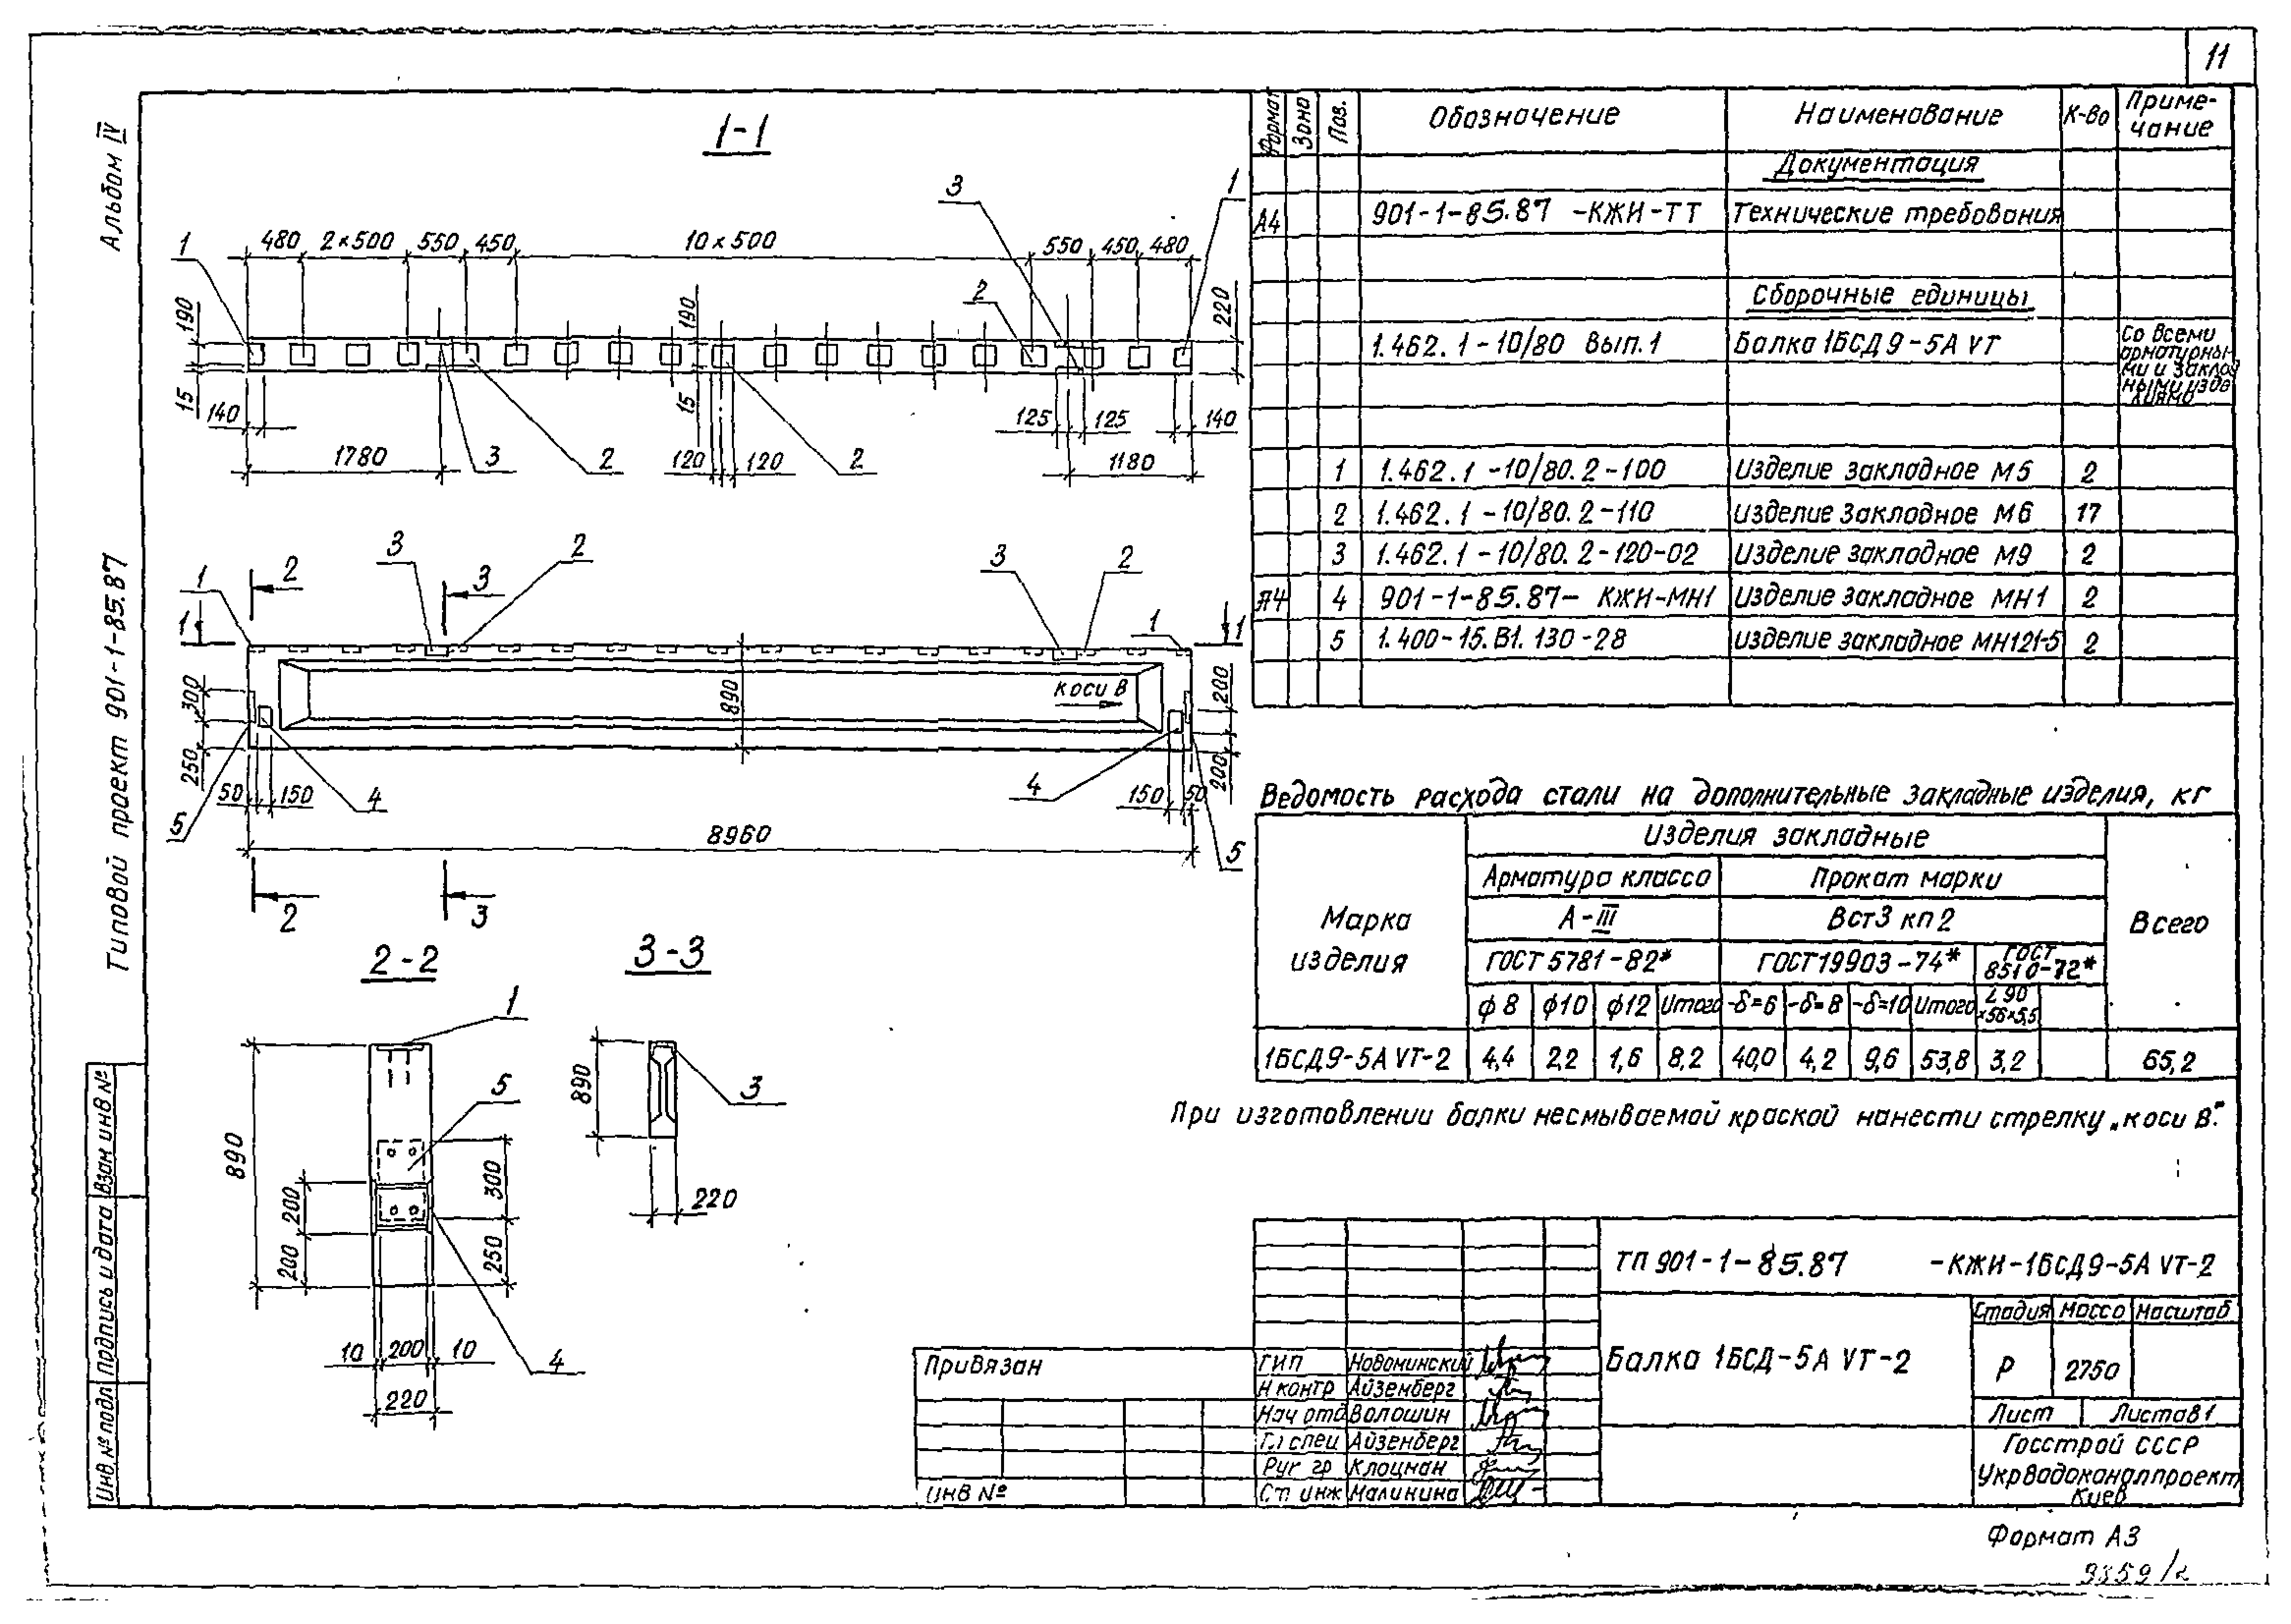 11
Альбом IV
Типовой проект 901-1-85.87
1-1
3
1
1
480 2×500 550 450 10×500 550 450 480
2
190
190
220
15
15
140
125 125 140
1780
3
2
120 120
2
1180
3
2
3
2
1
2
3
1
1
1
300
890
коси В
200
250
200
50 150
4
4
150 50
5
8960
5
2
3
2-2
3-3
1
890
3
5
890
300
220
200
200
250
10 200 10
4
220
Формат Зона Поз. Обозначение Наименование К-во Приме-
чание
Документация
А4 901-1-85.87 -КЖИ-ТТ Технические требования
Сборочные единицы
1.462.1-10/80 Вып.1 Балка 1БСД9-5АVТ Со всеми
арматурны-
ми и заклад
ными изде
лиями
1 1.462.1-10/80.2-100 Изделие закладное М5 2
2 1.462.1-10/80.2-110 Изделие закладное М6 17
3 1.462.1-10/80.2-120-02 Изделие закладное М9 2
А4 4 901-1-85.87- КЖИ-МН1 Изделие закладное МН1 2
5 1.400-15.В1.130-28 Изделие закладное МН121-5 2
Ведомость расхода стали на дополнительные закладные изделия, кг
Марка изделия
Изделия закладные
Всего
Арматура класса Прокат марки
А-III ВСт3 кп2
ГОСТ 5781-82* ГОСТ19903-74* ГОСТ 8510-72*
ф8 ф10 ф12 Итого -δ=6 -δ=8 -δ=10 Итого L90×56×5,5
1БСД9-5АVТ-2 4,4 2,2 1,6 8,2 40,0 4,2 9,6 53,8 3,2 65,2
При изготовлении балки несмываемой краской нанести стрелку „коси В."
ТП 901-1-85.87 -КЖИ-1БСД9-5АVТ-2
Балка 1БСД-5АVТ-2
Стадия Масса Масштаб
Р 2750
Лист Листов 1
Госстрой СССР
Укрводоканалпроект
Киев
Привязан
Инв №
ГИП Новоминский
Н контр Айзенберг
Нач отд Волошин
Гл спец Айзенберг
Рук гр Клоцман
Ст инж Малинина
Инв. № подл Подпись и дата Взам инв №
Формат А3